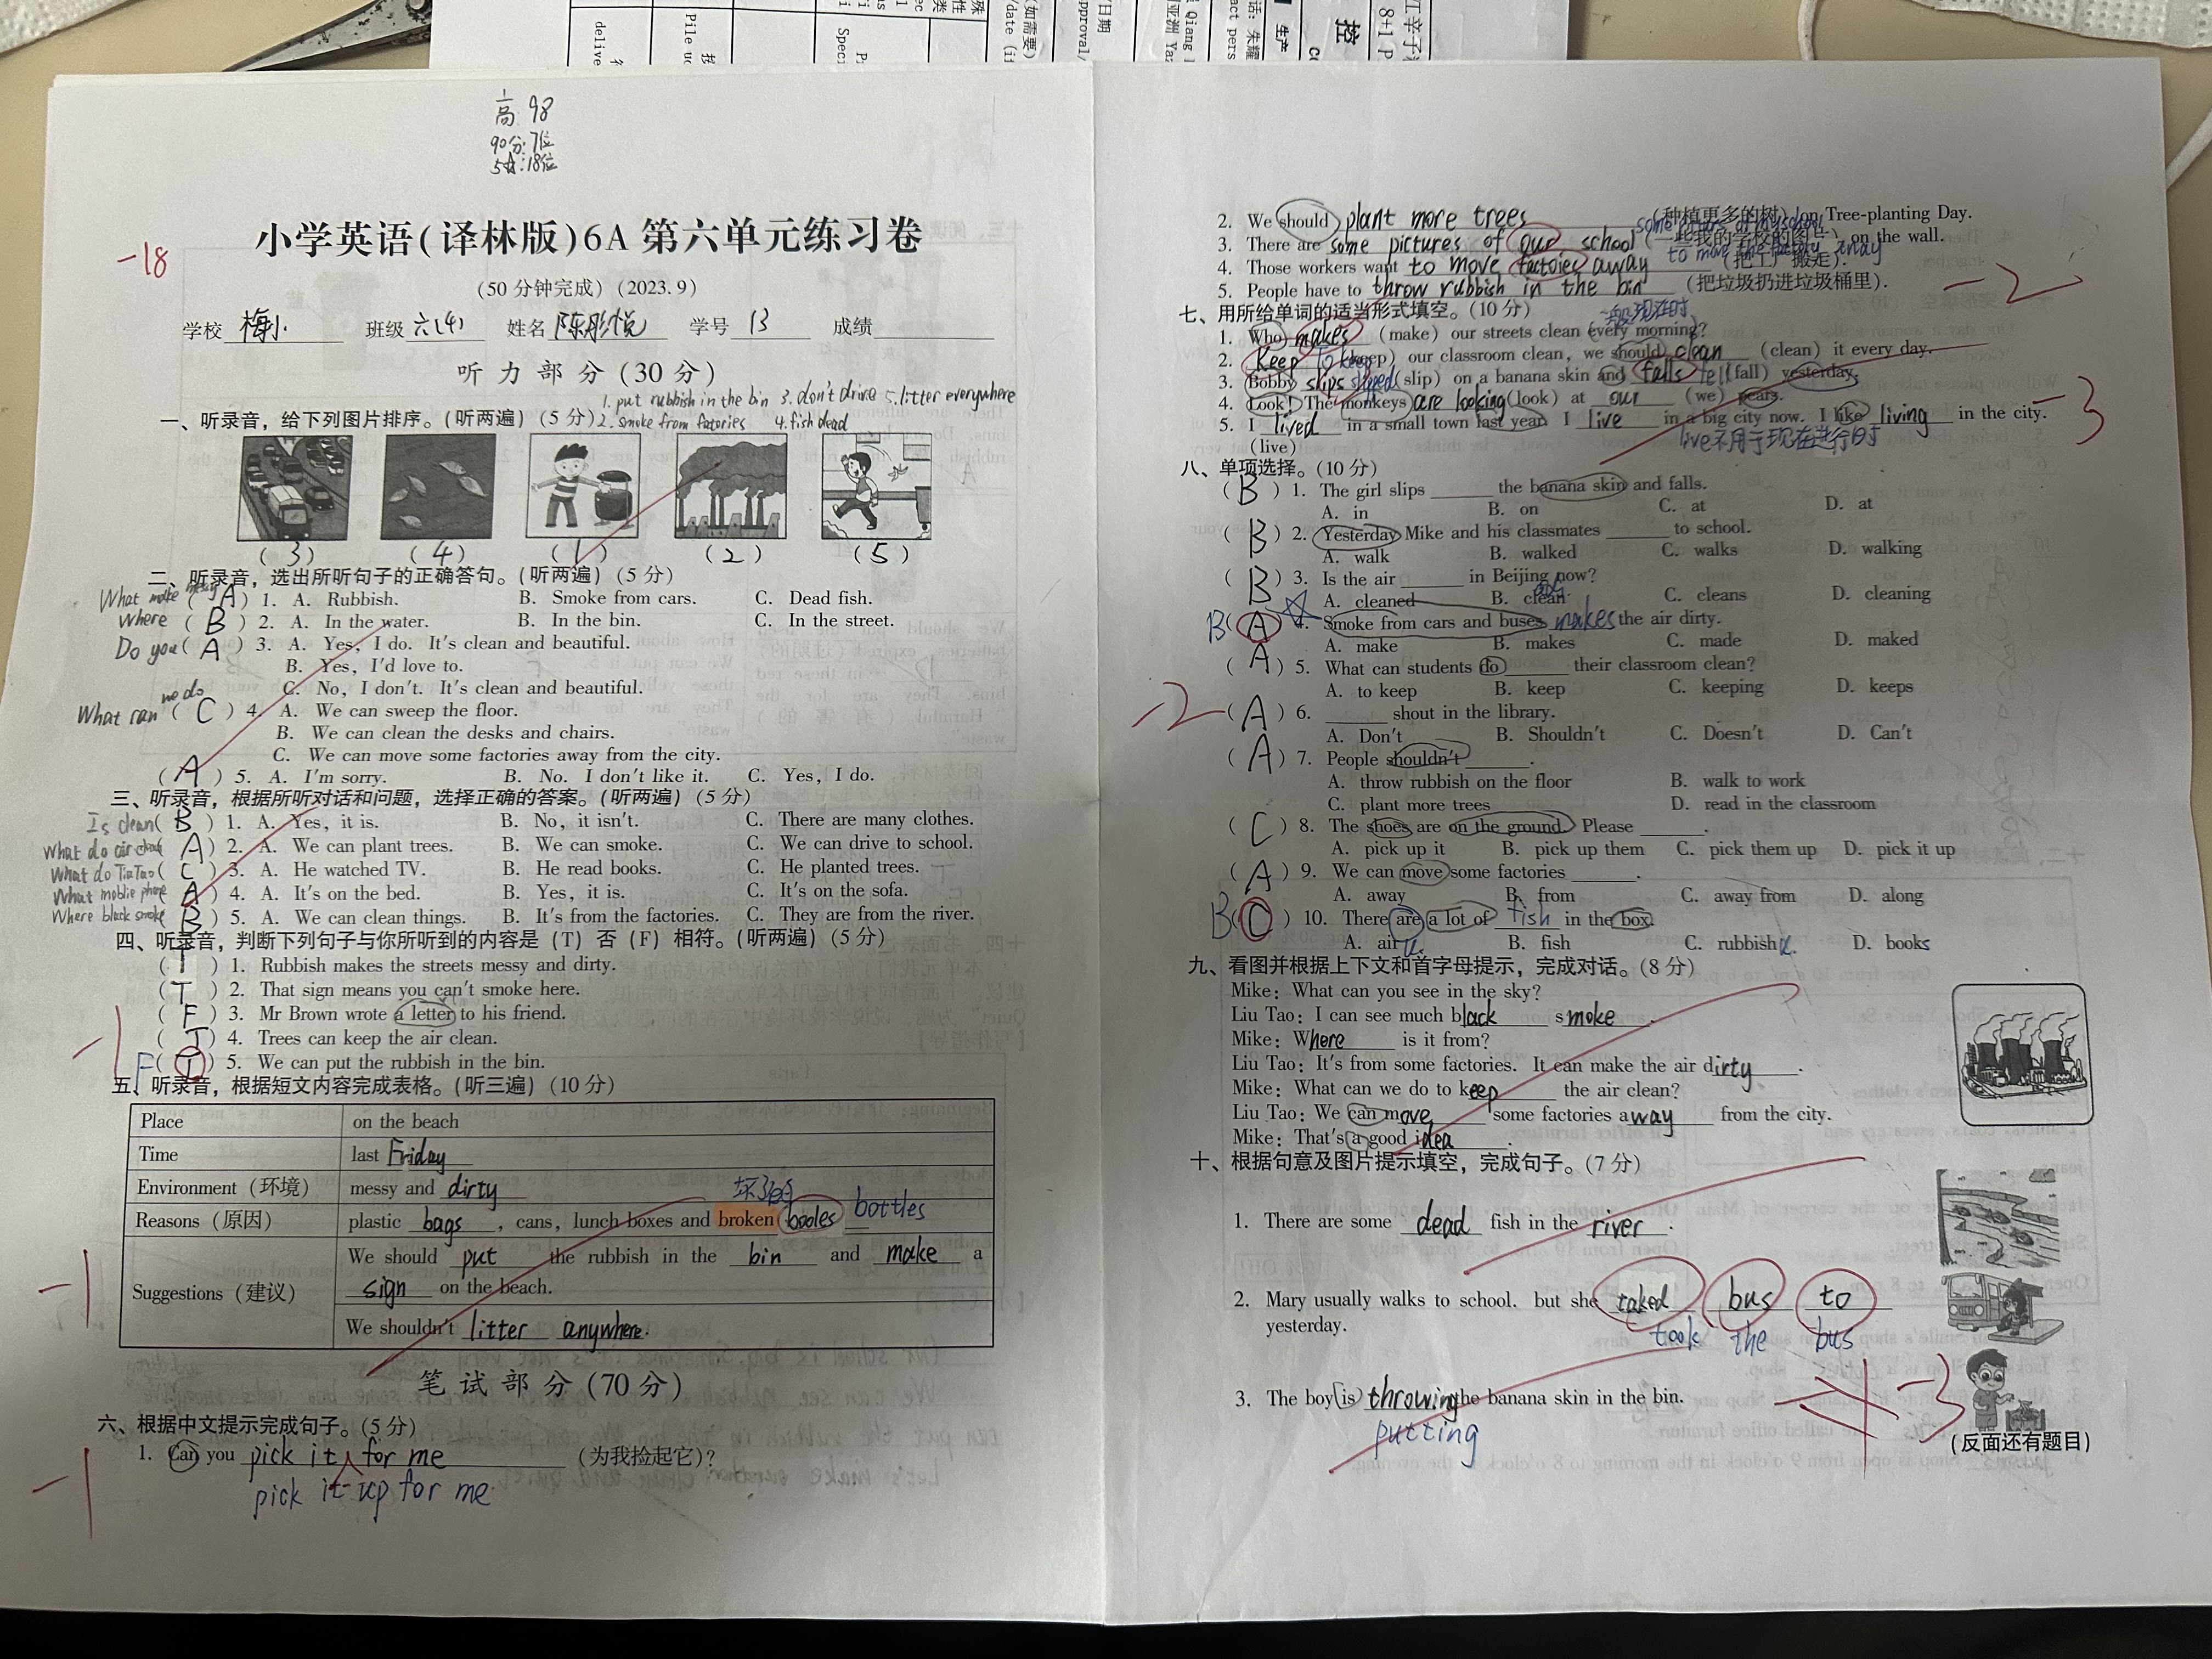 高 98
90分:7位
18位
小学英语(译林版)6A 第六单元练习卷
-18
(50分钟完成) (2023.9)
学校 梅小 班级 六(4) 姓名 陈彤悦 学号 13 成绩
听力部分(30分)
1. put rubbish in the bin 3. don't drive 5. litter everywhere
一、听录音,给下列图片排序。(听两遍) (5分) 2. smoke from fatories 4. fish dead
(3) (4) (1) (2) (5)
二、听录音,选出所听句子的正确答句。(听两遍) (5分)
What make messy (A) 1. A. Rubbish. B. Smoke from cars. C. Dead fish.
Where (B) 2. A. In the water. B. In the bin. C. In the street.
Do you (A) 3. A. Yes, I do. It's clean and beautiful.
B. Yes, I'd love to.
C. No, I don't. It's clean and beautiful.
What can we do (C) 4. A. We can sweep the floor.
B. We can clean the desks and chairs.
C. We can move some factories away from the city.
(A) 5. A. I'm sorry. B. No. I don't like it. C. Yes, I do.
三、听录音,根据所听对话和问题,选择正确的答案。(听两遍) (5分)
Is clean (B) 1. A. Yes, it is. B. No, it isn't. C. There are many clothes.
What do air clean (A) 2. A. We can plant trees. B. We can smoke. C. We can drive to school.
What do (C) 3. A. He watched TV. B. He read books. C. He planted trees.
What moblie phone (A) 4. A. It's on the bed. B. Yes, it is. C. It's on the sofa.
Where black smoke (B) 5. A. We can clean things. B. It's from the factories. C. They are from the river.
四、听录音,判断下列句子与你所听到的内容是(T)否(F)相符。(听两遍) (5分)
(T) 1. Rubbish makes the streets messy and dirty.
(T) 2. That sign means you can't smoke here.
(F) 3. Mr Brown wrote a letter to his friend.
(T) 4. Trees can keep the air clean.
-1 F (T) 5. We can put the rubbish in the bin.
五、听录音,根据短文内容完成表格。(听三遍) (10分)
Place on the beach
Time last Friday
Environment (环境) messy and dirty
坏了的
Reasons (原因) plastic bags, cans, lunch boxes and broken booles bottles
Suggestions (建议) We should put the rubbish in the bin and make a
sign on the beach.
We shouldn't litter anywhere.
-1
笔试部分(70分)
六、根据中文提示完成句子。(5分)
1. Can you pick it for me (为我捡起它)?
pick it up for me
-1
2. We should plant more trees (种植更多的树) on Tree-planting Day.
3. There are some pictures of our school (一些我的学校的图片) on the wall.
4. Those workers want to move factories away (把工厂搬走).
5. People have to throw rubbish in the bin (把垃圾扔进垃圾桶里).
-2
七、用所给单词的适当形式填空。(10分) 一般现在时
1. Who makes (make) our streets clean every morning?
2. Keep To keep (keep) our classroom clean, we should clean (clean) it every day.
3. Bobby slips slipped (slip) on a banana skin and falls fell (fall) yesterday.
4. Look! The monkeys are looking (look) at our (we) pears.
5. I lived in a small town last year. I live in a big city now. I like living in the city.
(live) live不用于现在进行时
-3
八、单项选择。(10分)
(B) 1. The girl slips ______ the banana skin and falls.
A. in B. on C. at D. at
(B) 2. Yesterday Mike and his classmates ______ to school.
A. walk B. walked C. walks D. walking
(B) 3. Is the air ______ in Beijing now?
A. cleaned B. clean C. cleans D. cleaning
B (A) 4. Smoke from cars and buses makes the air dirty.
A. make B. makes C. made D. maked
(A) 5. What can students do ______ their classroom clean?
A. to keep B. keep C. keeping D. keeps
-2 (A) 6. ______ shout in the library.
A. Don't B. Shouldn't C. Doesn't D. Can't
(A) 7. People shouldn't ______.
A. throw rubbish on the floor B. walk to work
C. plant more trees D. read in the classroom
(C) 8. The shoes are on the ground. Please ______.
A. pick up it B. pick up them C. pick them up D. pick it up
(A) 9. We can move some factories ______.
A. away B. from C. away from D. along
B (C) 10. There are a lot of fish in the box.
A. air B. fish C. rubbish D. books
九、看图并根据上下文和首字母提示,完成对话。(8分)
Mike: What can you see in the sky?
Liu Tao: I can see much black smoke.
Mike: Where is it from?
Liu Tao: It's from some factories. It can make the air dirty.
Mike: What can we do to keep the air clean?
Liu Tao: We can move some factories away from the city.
Mike: That's a good idea.
十、根据句意及图片提示填空,完成句子。(7分)
1. There are some dead fish in the river.
2. Mary usually walks to school. but she taked bus to
yesterday. took the bus
3. The boy is throwing the banana skin in the bin.
putting
-3
(反面还有题目)